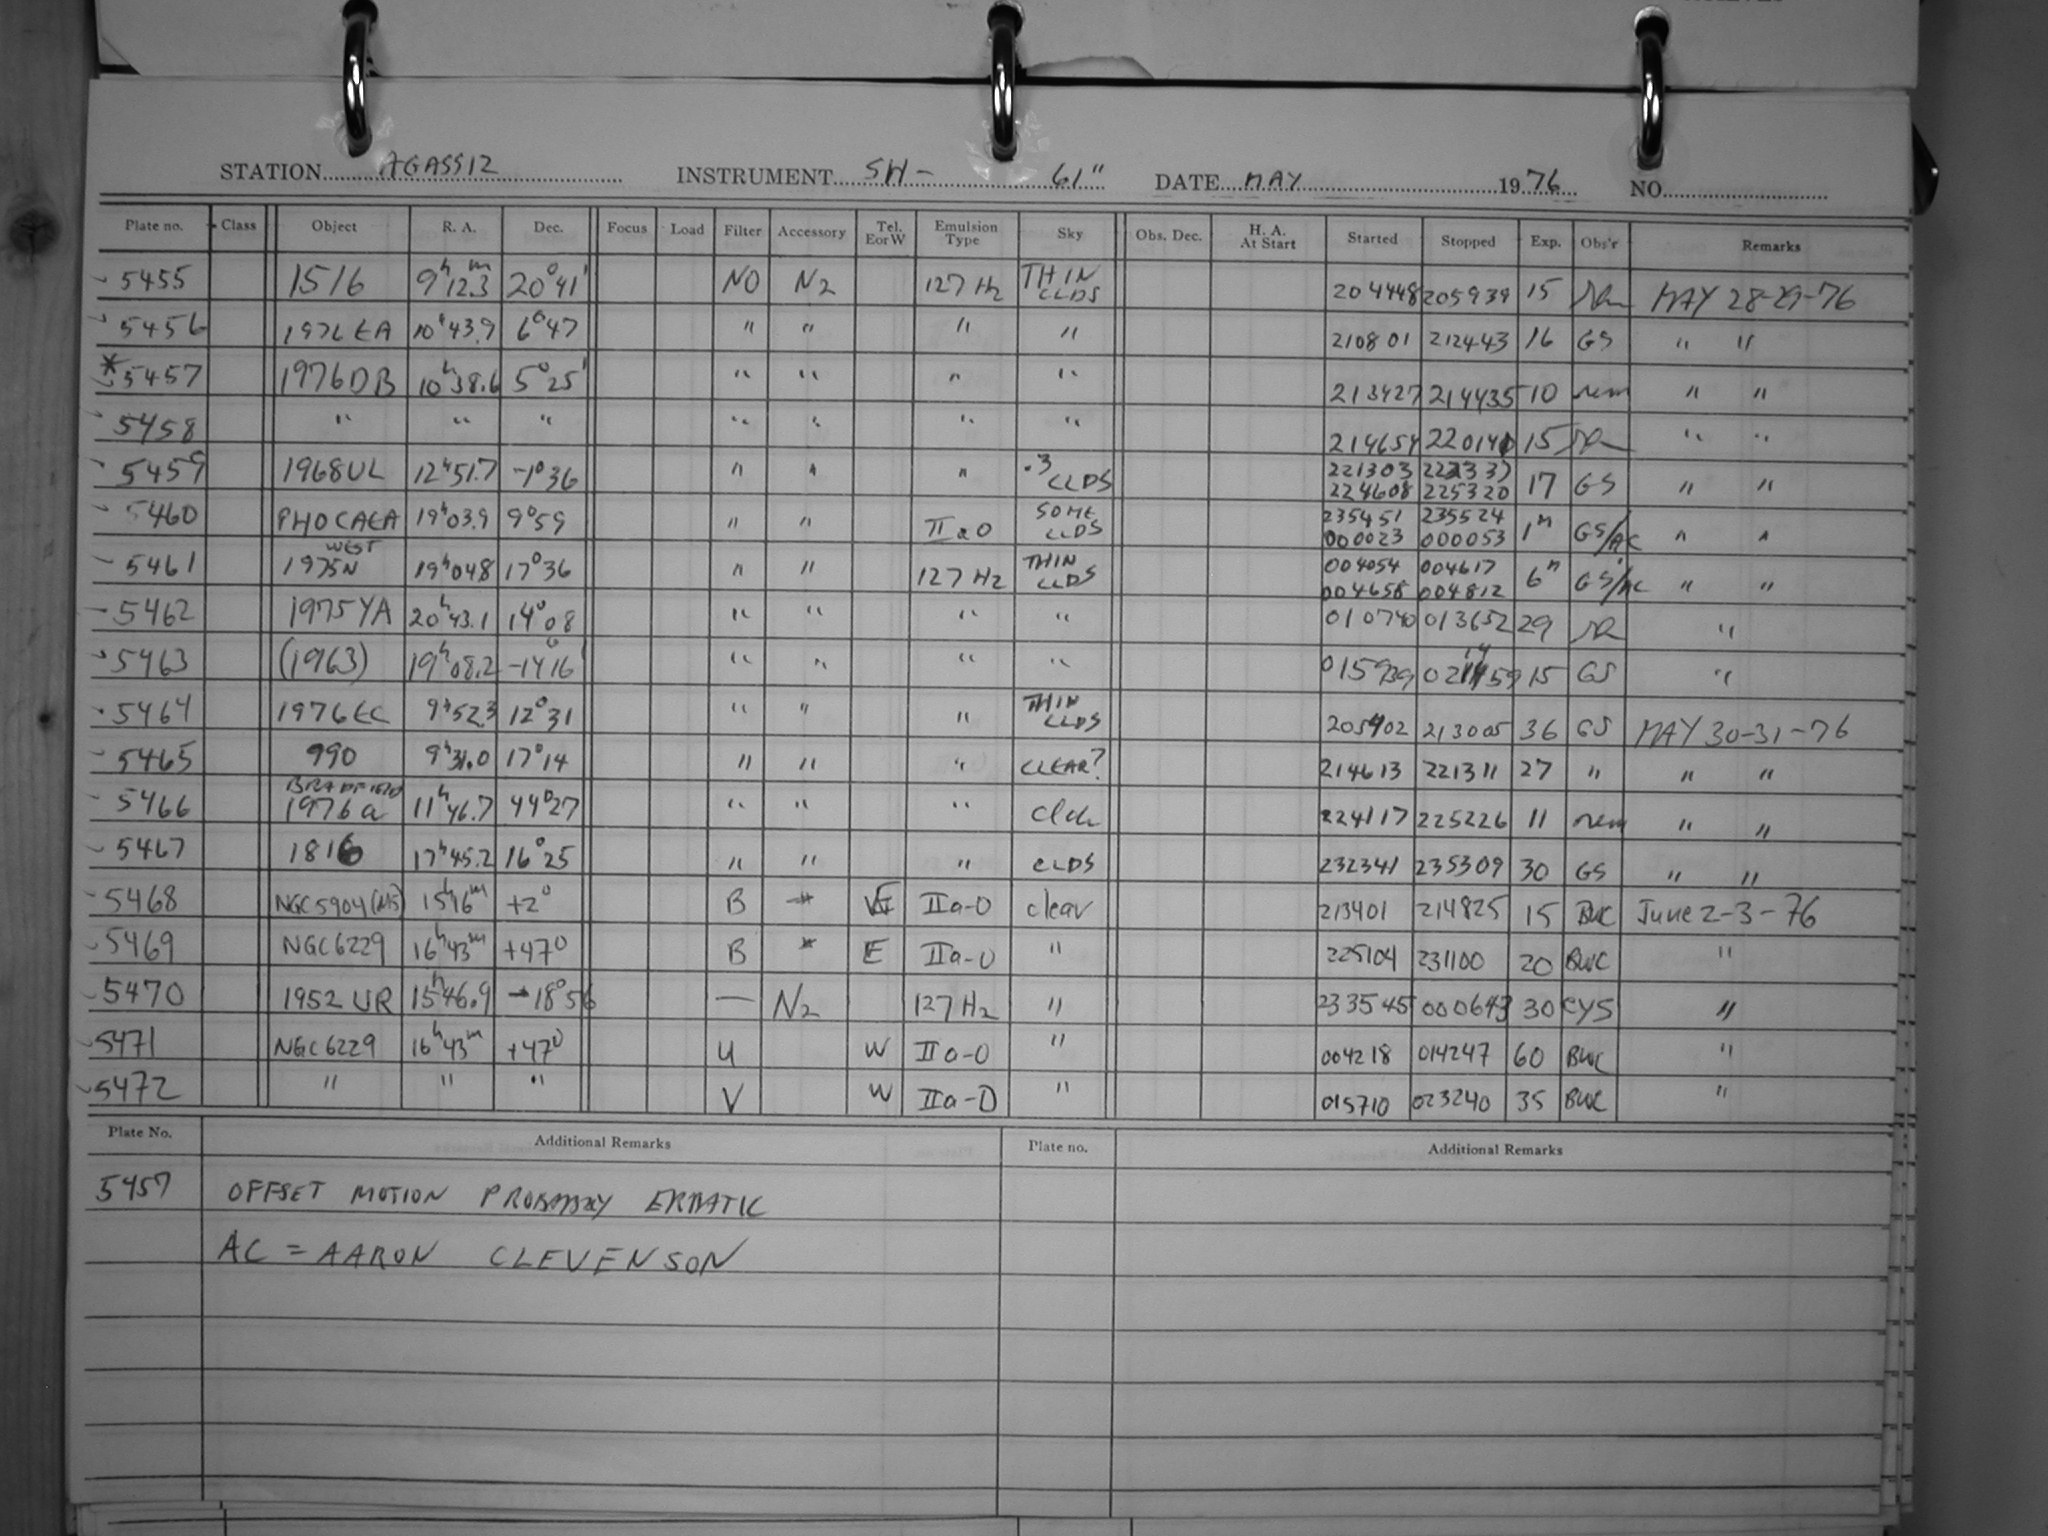 STATION AGASSIZ INSTRUMENT SH- 61" DATE MAY 1976 NO.
Plate no. Class Object R. A. Dec. Focus Load Filter Accessory Tel. EorW Emulsion Type Sky Obs. Dec. H. A. At Start Started Stopped Exp. Obs'r Remarks
5455 1516 9h12.3m 20°41' NO N2 127 Hz THIN CLDS 204448 205939 15 MAY 28-29-76
5456 1976EA 10h43.9 6°47 " " " " 210801 212443 16 GS " "
*5457 1976DB 10h38.6 5°25' " " " " 213427 214435 10 rem " "
5458 " " " " " " " 214654 220140 15 " "
5459 1968UL 12h51.7 -1°36 " " " .3 CLDS 221303 222337 224608 225320 17 GS " "
5460 PHOCAEA 19h03.9 9°59 " " IIaO SOME CLDS 235451 235524 000023 000053 1m GS/AC " "
5461 WEST 1975N 19h04.8 17°36 " " 127 Hz THIN CLDS 004054 004617 004658 004812 6m GS/AC " "
5462 1975YA 20h43.1 14°08 " " " " 010740 013652 29 "
5463 (1963) 19h08.2 -14°16' " " " " 015939 021459 15 GS "
5464 1976EC 9h52.3 12°31 " " " THIN CLDS 205402 213005 36 GS MAY 30-31-76
5465 990 9h31.0 17°14 " " " CLEAR? 214613 221311 27 " " "
5466 BRADFIELD 1976a 11h46.7 44°27 " " " 224117 225226 11 rem " "
5467 1816 17h45.2 16°25 " " " CLDS 232341 235309 30 GS " "
5468 NGC5904(M5) 15h16m +2° B * IIa-O clear 213401 214825 15 BWC June 2-3-76
5469 NGC6229 16h43m +47° B * E IIa-O " 225104 231100 20 BWC "
5470 1952 UR 15h46.9 -18°56 — N2 127 Hz " 233545 000643 30 CYS "
5471 NGC6229 16h43m +47° U W IIa-O " 004218 014247 60 BWC "
5472 " " " V W IIa-D " 015710 023240 35 BWC "
Plate No. Additional Remarks Plate no. Additional Remarks
5457 OFFSET MOTION PROBABLY ERRATIC
AC = AARON CLEVENSON